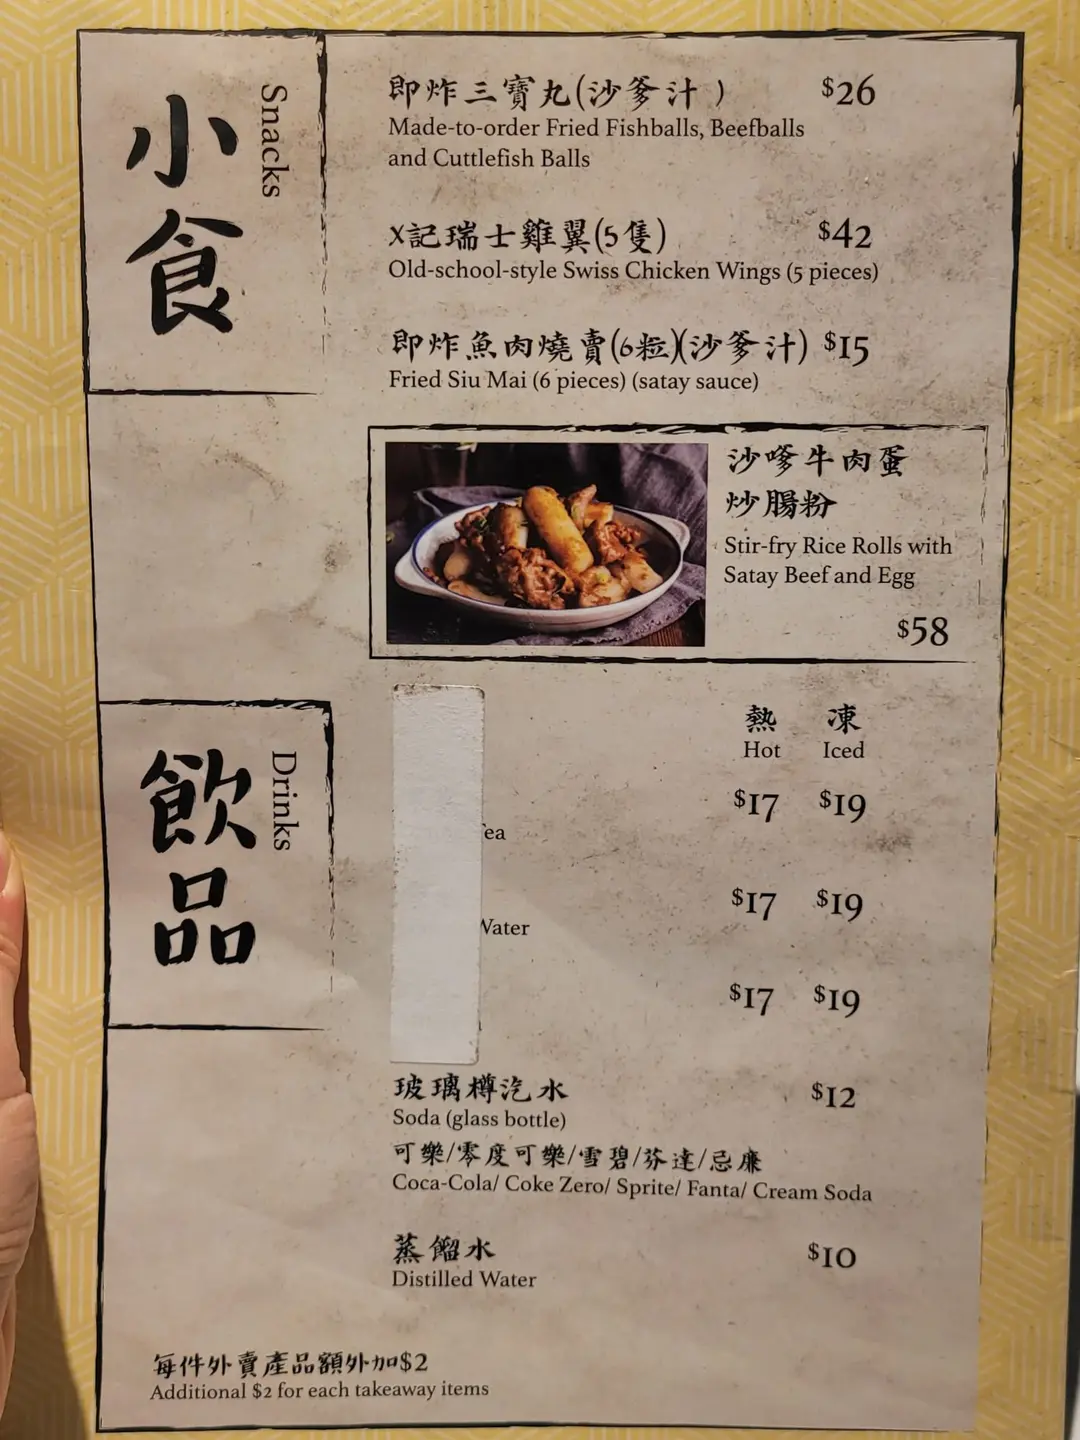 小食
Snacks
即炸三寶丸(沙爹汁) $26
Made-to-order Fried Fishballs, Beefballs
and Cuttlefish Balls
X記瑞士雞翼(5隻) $42
Old-school-style Swiss Chicken Wings (5 pieces)
即炸魚肉燒賣(6粒)(沙爹汁) $15
Fried Siu Mai (6 pieces) (satay sauce)
沙嗲牛肉蛋
炒腸粉
Stir-fry Rice Rolls with
Satay Beef and Egg
$58
飲品
Drinks
熱 凍
Hot Iced
$17 $19
$17 $19
Water
$17 $19
玻璃樽汽水 $12
Soda (glass bottle)
可樂/零度可樂/雪碧/芬達/忌廉
Coca-Cola/ Coke Zero/ Sprite/ Fanta/ Cream Soda
蒸餾水 $10
Distilled Water
每件外賣產品額外加$2
Additional $2 for each takeaway items